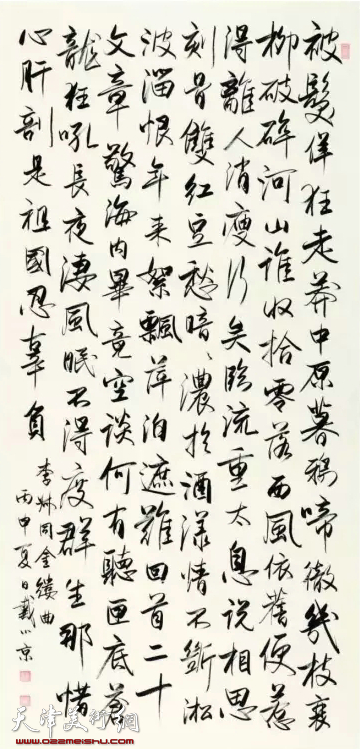 被髮佯狂走莽中原暮鴉啼徹幾枝衰
柳破碎河山誰收拾零落西風依舊便惹
得離人消瘦行矣臨流重太息說相思
刻骨雙紅豆愁暗々濃於酒漾情不斷淞
波溜恨年來絮飄萍泊遮難回首二十
文章驚海內畢竟空談何有聽匣底蒼
龍狂吼長夜淒風眠不得度群生那惜
心肝剖是祖國忍辜負
李叔同金縷曲
丙申夏日戴小京
天津美術網
www.022meishu.com